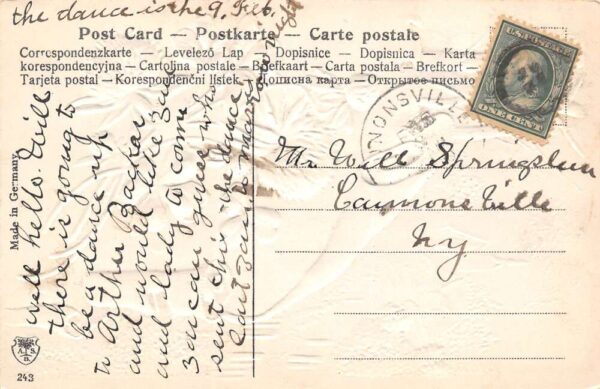 the dance is the 9, Feb.
Post Card — Postkarte — Carte postale
Correspondenzkarte — Levelező Lap — Dopisnice — Dopisnica — Karta
korespondencyjna — Cartolina postale — Briefkaart — Carta postala — Brefkort —
Tarjeta postal — Korespondenční lístek — Дописна карта — Открытое письмо
U.S. POSTAGE
ONE CENT
NONSVILLE
well hello. Will
there is going to
be a dance up
to Arther
and would like
and lady to come
can guess who
sent this the dance
Mr Will
Ny
Made in Germany
A.S.
B.
243